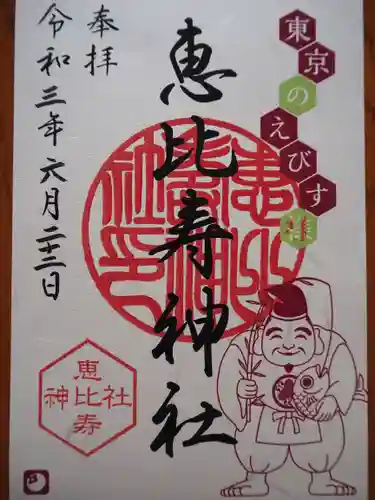 東京のえびす様
恵比寿神社
奉拝
令和三年六月二十二日
恵比寿神社印
恵比寿
神社